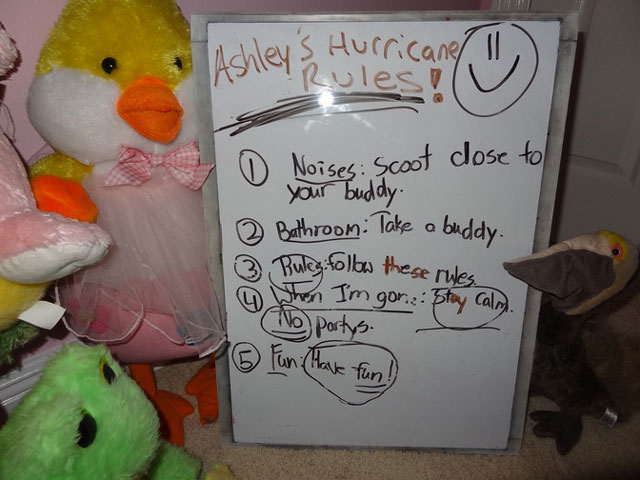 Ashley's Hurricane
Rules!
1 Noises: scoot close to
your buddy.
2 Bathroom: Take a buddy.
3 Rules: follow these rules.
4 When I'm gon: Stay calm.
No partys.
5 Fun: Have fun!